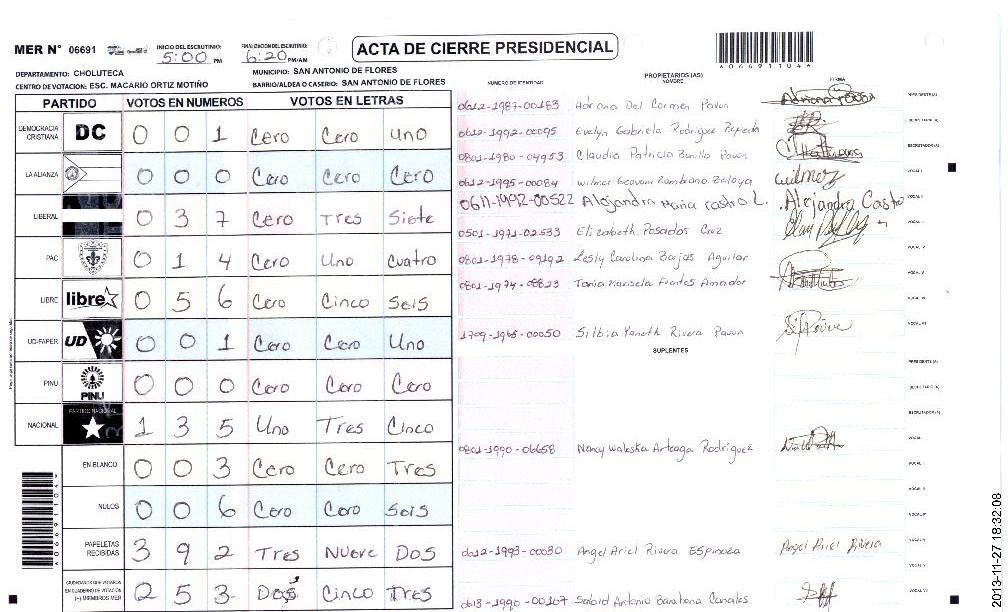 MER N° 06691 INICIO DEL ESCRUTINIO: 5:00 PM FINALIZACION DEL ESCRUTINIO: 6:20 PM/AM ACTA DE CIERRE PRESIDENCIAL
4066911044
DEPARTAMENTO: CHOLUTECA MUNICIPIO: SAN ANTONIO DE FLORES
CENTRO DE VOTACION: ESC. MACARIO ORTIZ MOTIÑO BARRIO/ALDEA O CASERIO: SAN ANTONIO DE FLORES
PARTIDO VOTOS EN NUMEROS VOTOS EN LETRAS
DEMOCRACIA CRISTIANA DC 0 0 1 Cero Cero Uno
LA ALIANZA 0 0 0 Cero Cero Cero
LIBERAL 0 3 7 Cero Tres Siete
PAC 0 1 4 Cero Uno Cuatro
LIBRE libre 0 5 6 Cero Cinco Seis
UD-FAPER UD 0 0 1 Cero Cero Uno
PINU PINU 0 0 0 Cero Cero Cero
NACIONAL PARTIDO NACIONAL 1 3 5 Uno Tres Cinco
EN BLANCO 0 0 3 Cero Cero Tres
NULOS 0 0 6 Cero Cero Seis
PAPELETAS RECIBIDAS 3 9 2 Tres Nueve Dos
CIUDADANOS QUE VOTARON EN CUADERNO DE VOTACIÓN (+) MIEMBROS MER 2 5 3 Dos Cinco Tres
NUMERO DE IDENTIDAD PROPIETARIOS (AS) NOMBRE FIRMA
0612-1987-00183 Adriana Del Carmen Pavon PRESIDENTE(A)
0612-1992-00095 Evelyn Gabriela Rodriguez Pepeda SECRETARIO (A)
0801-1980-04953 Claudia Patricia Bonilla Pavon ESCRUTADOR(A)
0612-1995-00084 Wilmer Geovani Zambrano Zelaya wilmer VOCAL I
0611-1992-00522 Alejandra Maria Castro L. Alejandra Castro
0501-1971-02533 Elizabeth Posadas Cruz
0801-1978-09192 Lesly Carolina Borjas Aguilar
0801-1974-08823 Tania Marisela Fuentes Amador
1709-1965-00050 Silbia Yaneth Rivera Pavon
SUPLENTES
PRESIDENTE(A)
SECRETARIO (A)
ESCRUTADOR(A)
0801-1990-06658 Nancy Waleska Arteaga Rodriguez VOCAL
0612-1993-00030 Angel Ariel Rivera Espinoza Angel Ariel Rivera
0613-1990-00107 Sabaid Antonio Barahona Canales
2013-11-27 18:32:08